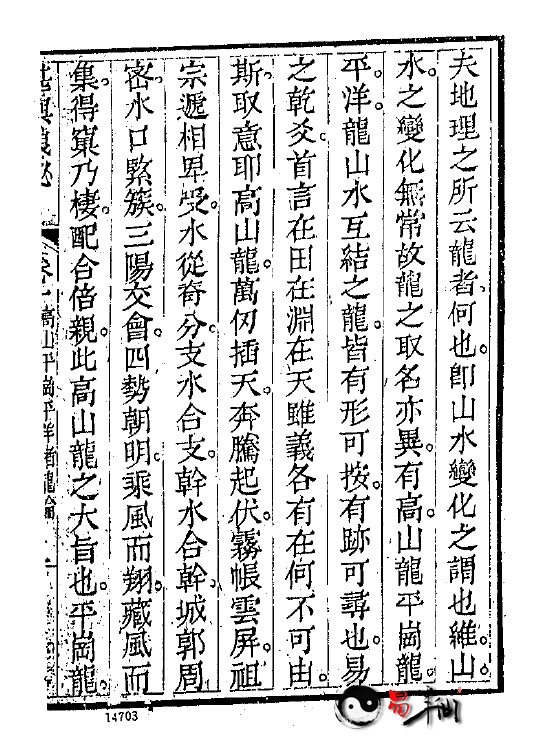 夫地理之所云龍者何也。卽山水變化之謂也。維山
水之變化無常故龍之取名亦異。有高山龍平崗龍
平洋龍山水互結之龍。皆有形可按。有跡可尋也。易
之乾爻。首言在田在淵在天雖義各有在何不可由
斯取意耶高山龍。萬仞插天。奔騰起伏。霧帳雲屏。祖
宗遞相卑受。水從脊分。支水合支。幹水合幹。城郭周
密。水口緊簇。三陽交會。四勢朝明。乘風而翔。藏風而
集。得窠乃棲。配合倍親。此高山龍之大旨也。平崗龍
高山平崗平洋諸龍論
14703
易